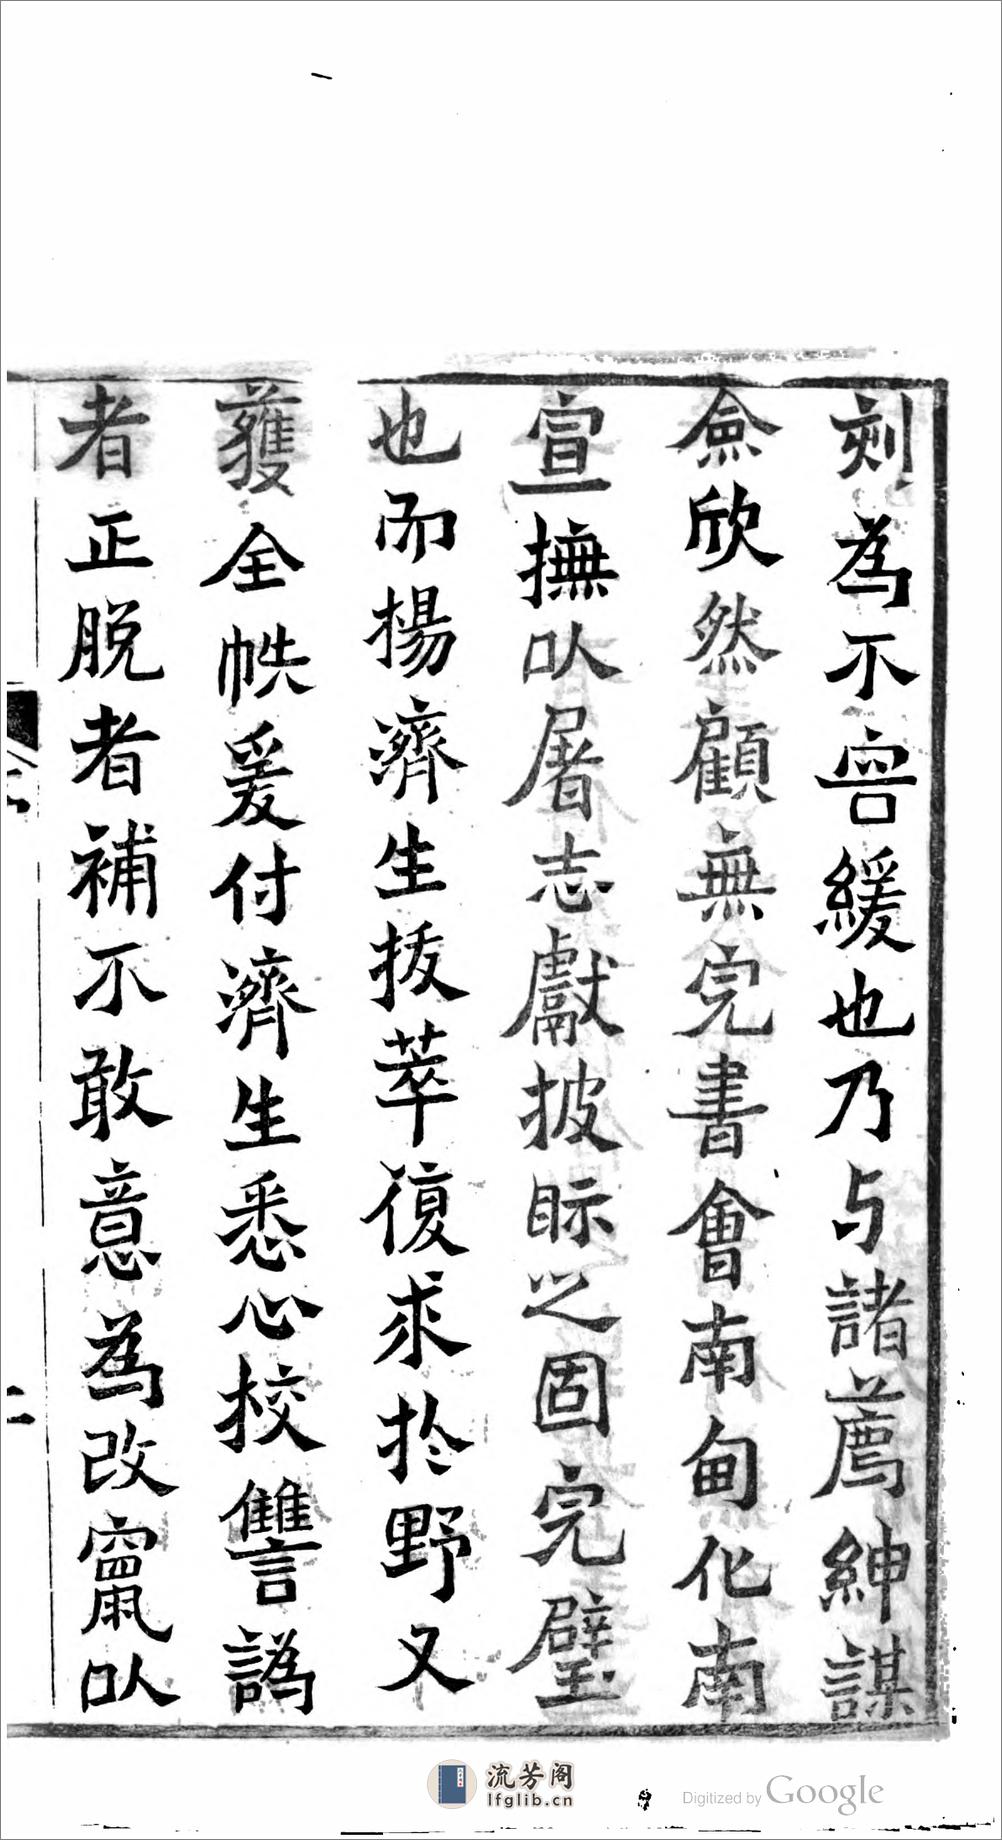 刻為不啻緩也乃与諸薦紳謀
僉欣然顧無完書會南甸化南
宣撫㕥屠志獻披眎之固完璧
也而揚濟生拔萃復求扵野又
獲全帙爰付濟生悉心校讐譌
者正脱者補不敢意為改竄㕥
流芳阁
lfglib.cn
Digitized by Google